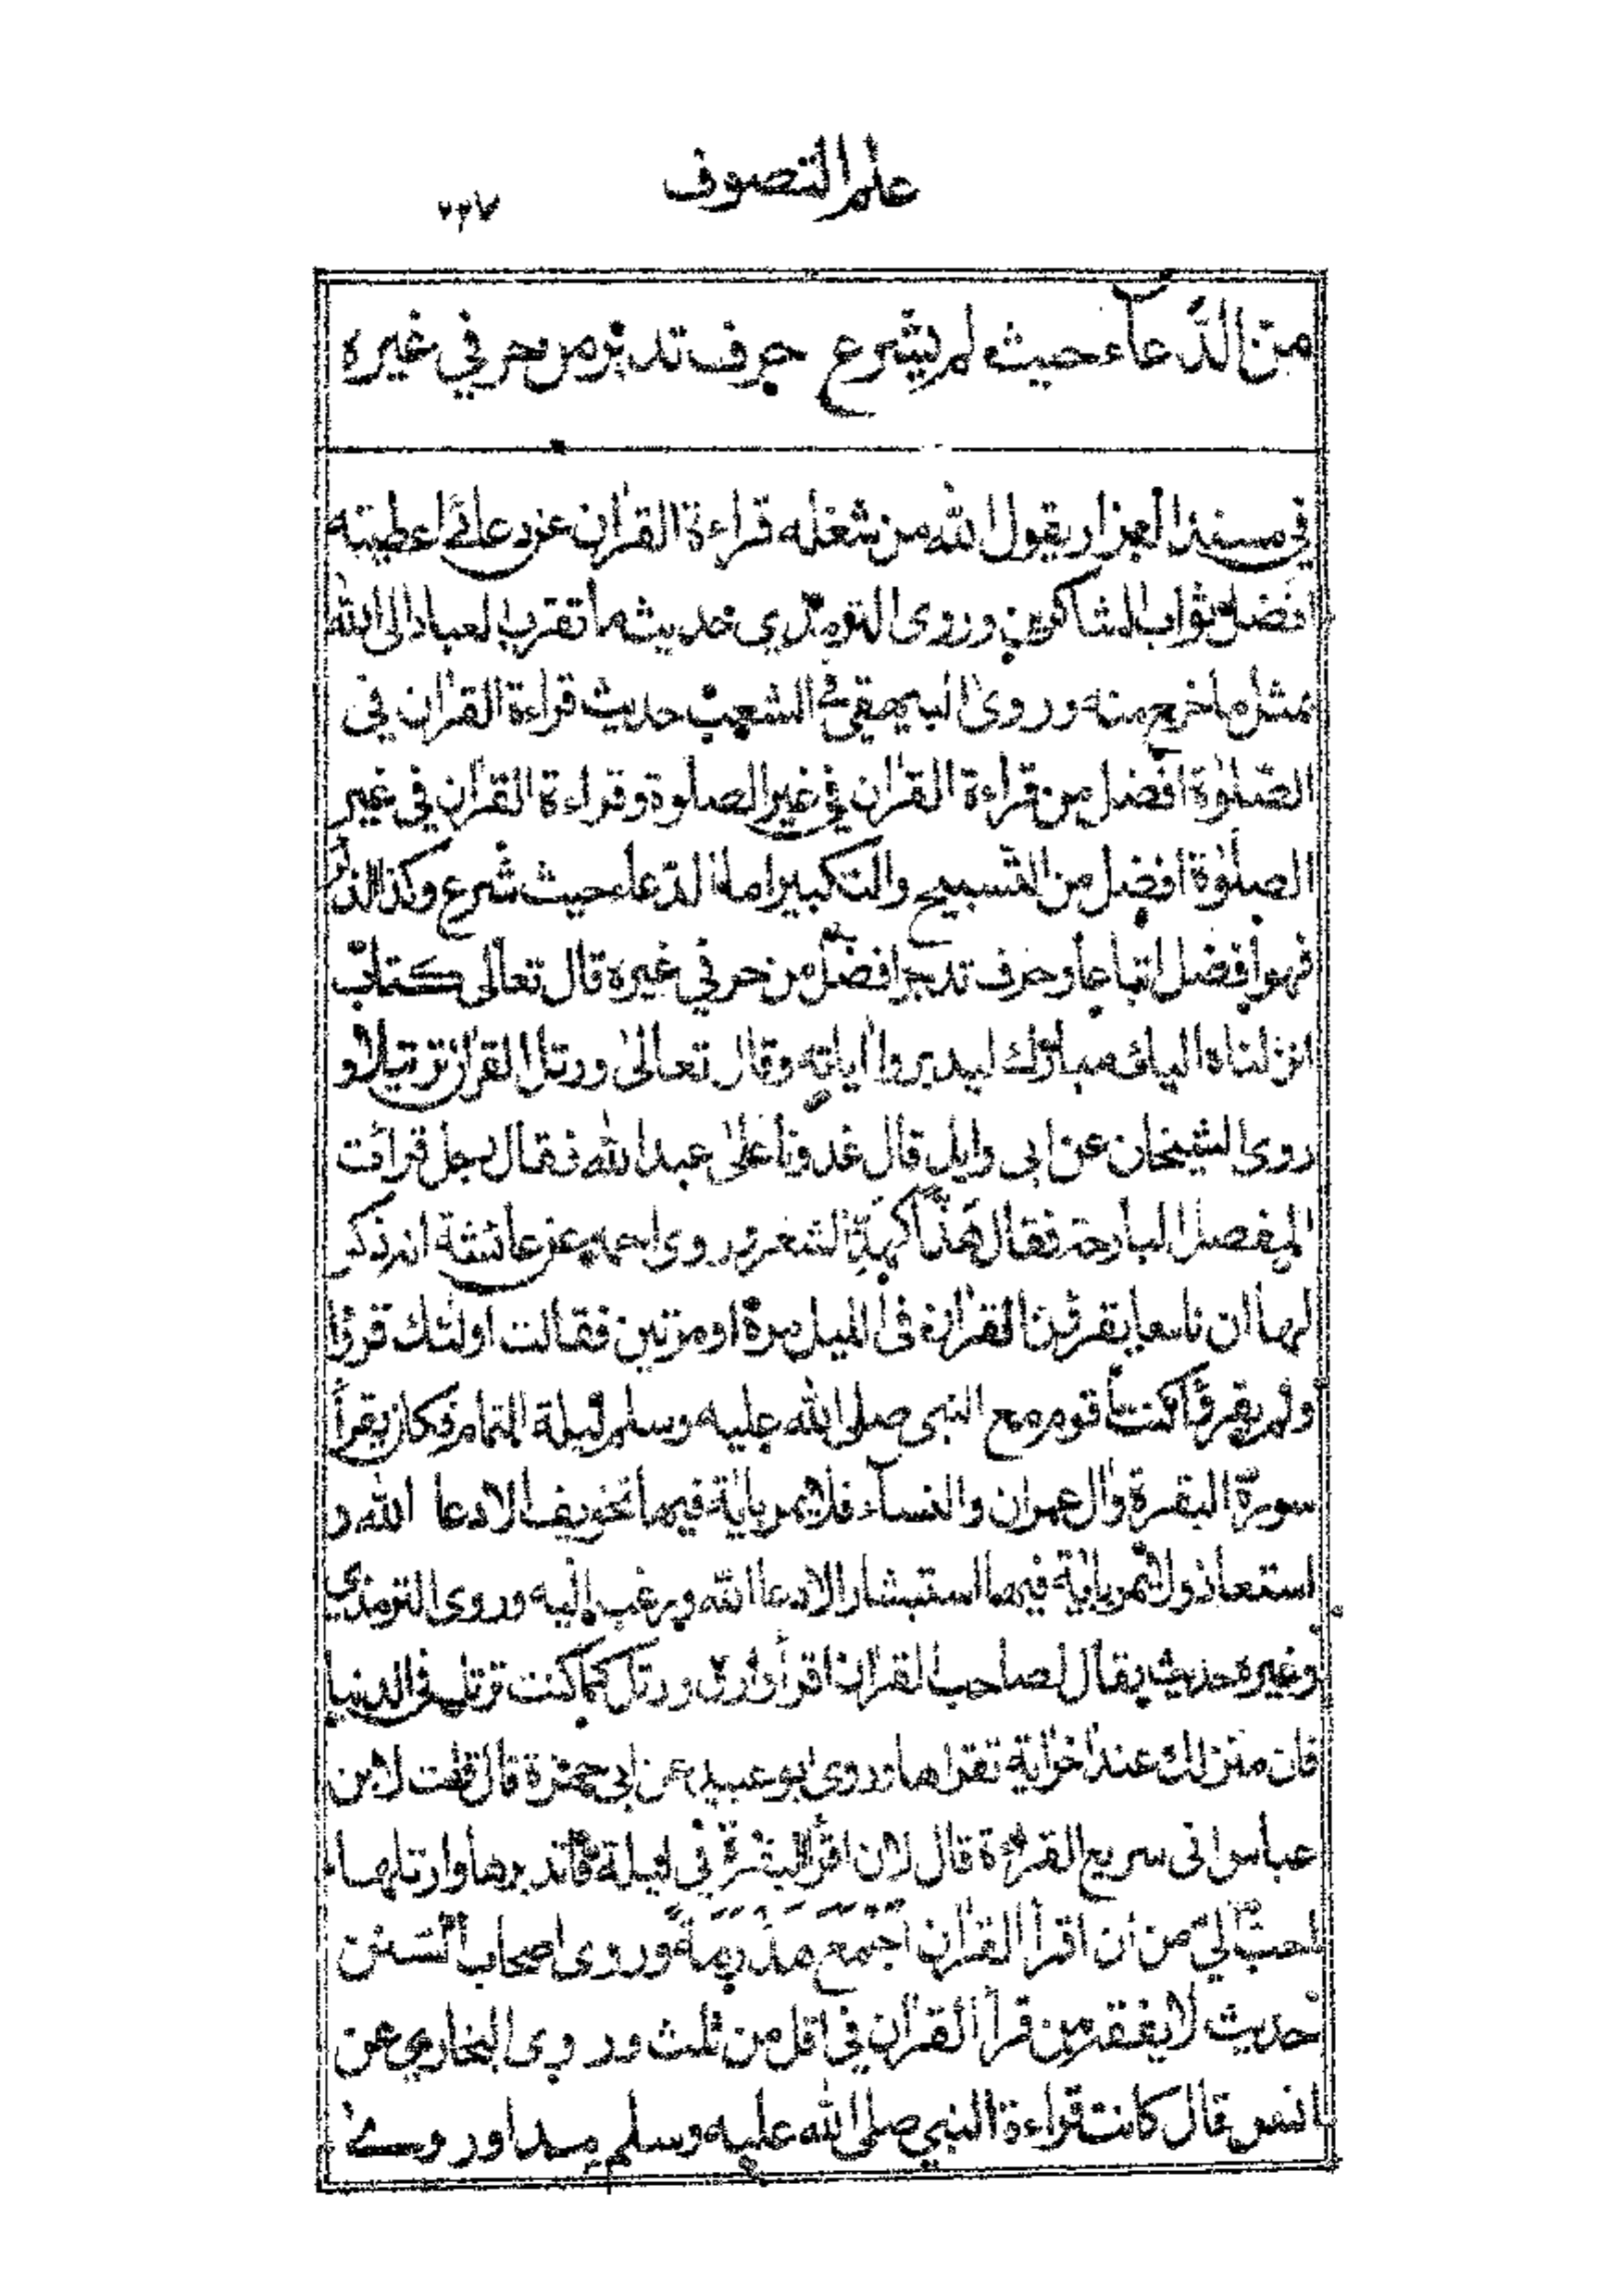 علم التصوف
٢٢٧
من الدّعآء حيث لم يشرع حرف تدبّر من حرفي غيره
في مسند البزار يقول الله من شغله قراءة القرأن عن دعائى اعطيته
افضل ثواب الشاكرين وروى الترمذي حديث ما تقرب العباد الى الله
بمثل ما خرج منه وروى البيهقي في الشعب حديث قراءة القرأن في
الصّلوة افضل من قراءة القرأن في غير الصلوة وقراءة القرأن في غير
الصلوة افضل من التّسبيح والتكبير اما الدّعاء حيث شرع وكذا الذكر
فهو افضل اتباعا وحرف تدبر افضل من حرفي غيره قال تعالى كتاب
انزلناه اليك مبارك ليدبروا أياته وقال تعالى ورتل القرأن ترتيلا و
روى الشيخان عن ابى وايل قال غدونا على عبد الله فقال رجل قرأت
المفصل البارحة فقال هَذًّا كهَذِّ الشعر وروى احمد عن عائشة انه ذكر
لها ان ناسا يقرؤن القرأن فى الليل مرة او مرتين فقالت اولئك قرؤا
ولم يقرؤا كنت اقوم مع النبى صلى الله عليه وسلم ليلة التمام فكان يقرأ
سورة البقرة وأل عمران والنسآء فلا يمر باية فيها تخويف الا دعا الله و
استعاذ ولا يمر باية فيها استبشار الا دعا الله ورغب اليه وروى الترمذي
وغيره حديث يقال لصاحب القرأن اقرأ وارق ورتل كما كنت ترتل فى الدنيا
فان منزلك عند أخر أية تقرأها وروى ابو عبيد عن ابي حمزة قال قلت لابن
عباس انى سريع القراءة قال لان اقرأ البقرة في ليلة فاتدبرها وارتلها
احب الي من ان اقرأ القرأن اجمع هذرمة وروى اصحاب السنن
حديث لا يفقه من قرأ القرأن في اقل من ثلث وروى البخاري عن
انس قال كانت قراءة النبي صلى الله عليه وسلم مدا وروى